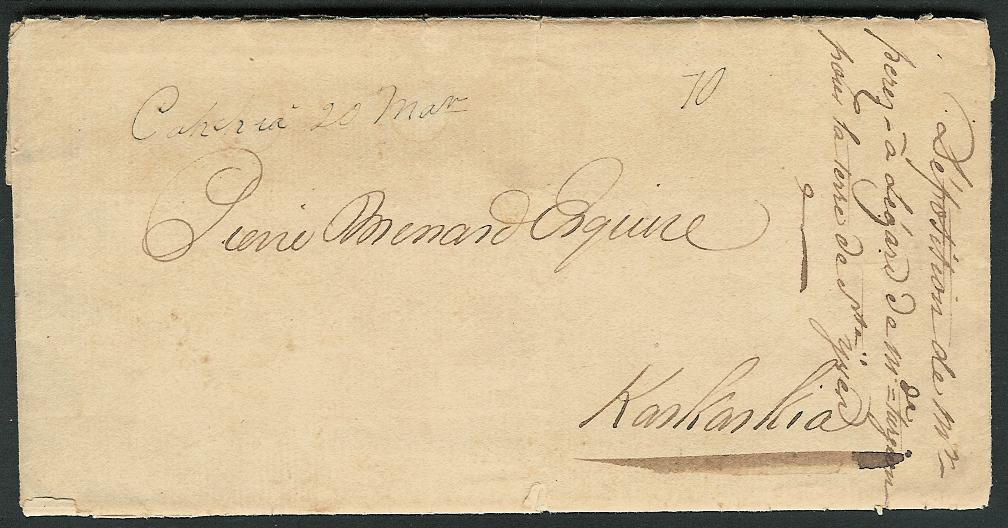 Caheria 20 Mar
10
Pierre Menard Esquire
Kaskaskia
Déposition de Mr
perez à Légard de Mr
pour la terre de Ste